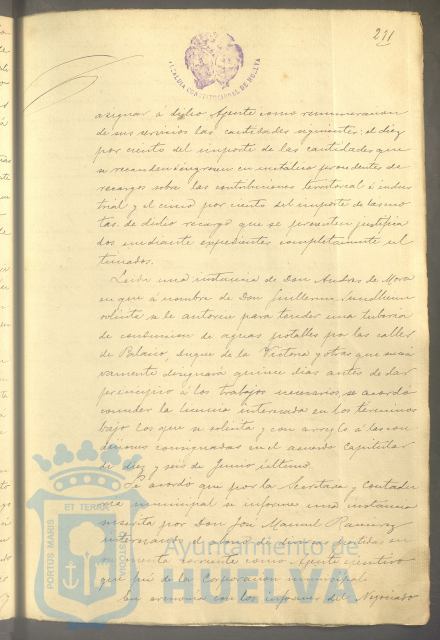 211
ALCALDIA CONSTITUCIONAL DE HUELVA
asignar á dicho Agente como remuneracion
de sus servicios las cantidades siguientes: el diez
por ciento del importe de las cantidades que
se recauden é ingresen en metalico procedentes de
recargos sobre las contribuciones territorial é indus
trial y el cinco por ciento del importe de las cuo
tas de dicho recargo que se presenten justifica
dos mediante expedientes completamente ul
timados.
Leida una instancia de Don Andres de Mora
en que á nombre de Don Guillermo Sundheim
solicita se le autorice para tender una tuberia
de conduccion de aguas potables por las calles
de Palacio, Duque de la Victoria y otras que suce
vamente designará quince dias antes de dar
principio á los trabajos necesarios, se acordó
conceder la licencia interesada en los términos
bajo los que se solicita y con arreglo á las con
diciones consignadas en el acuerdo capitular
de diez y seis de Junio último.
Se acordó que por la Secretaria y Contadu
ria municipal se informe una instancia
suscrita por Don José Manuel Ramirez
interesando el abono de diversas partidas en
cuenta corriente como Agente ejecutivo
que fué de la Corporacion municipal.
En armonia con los informes del Negociado
PORTUS MARIS ET TERRAE CUSTODIA
Ayuntamiento de
HUELVA